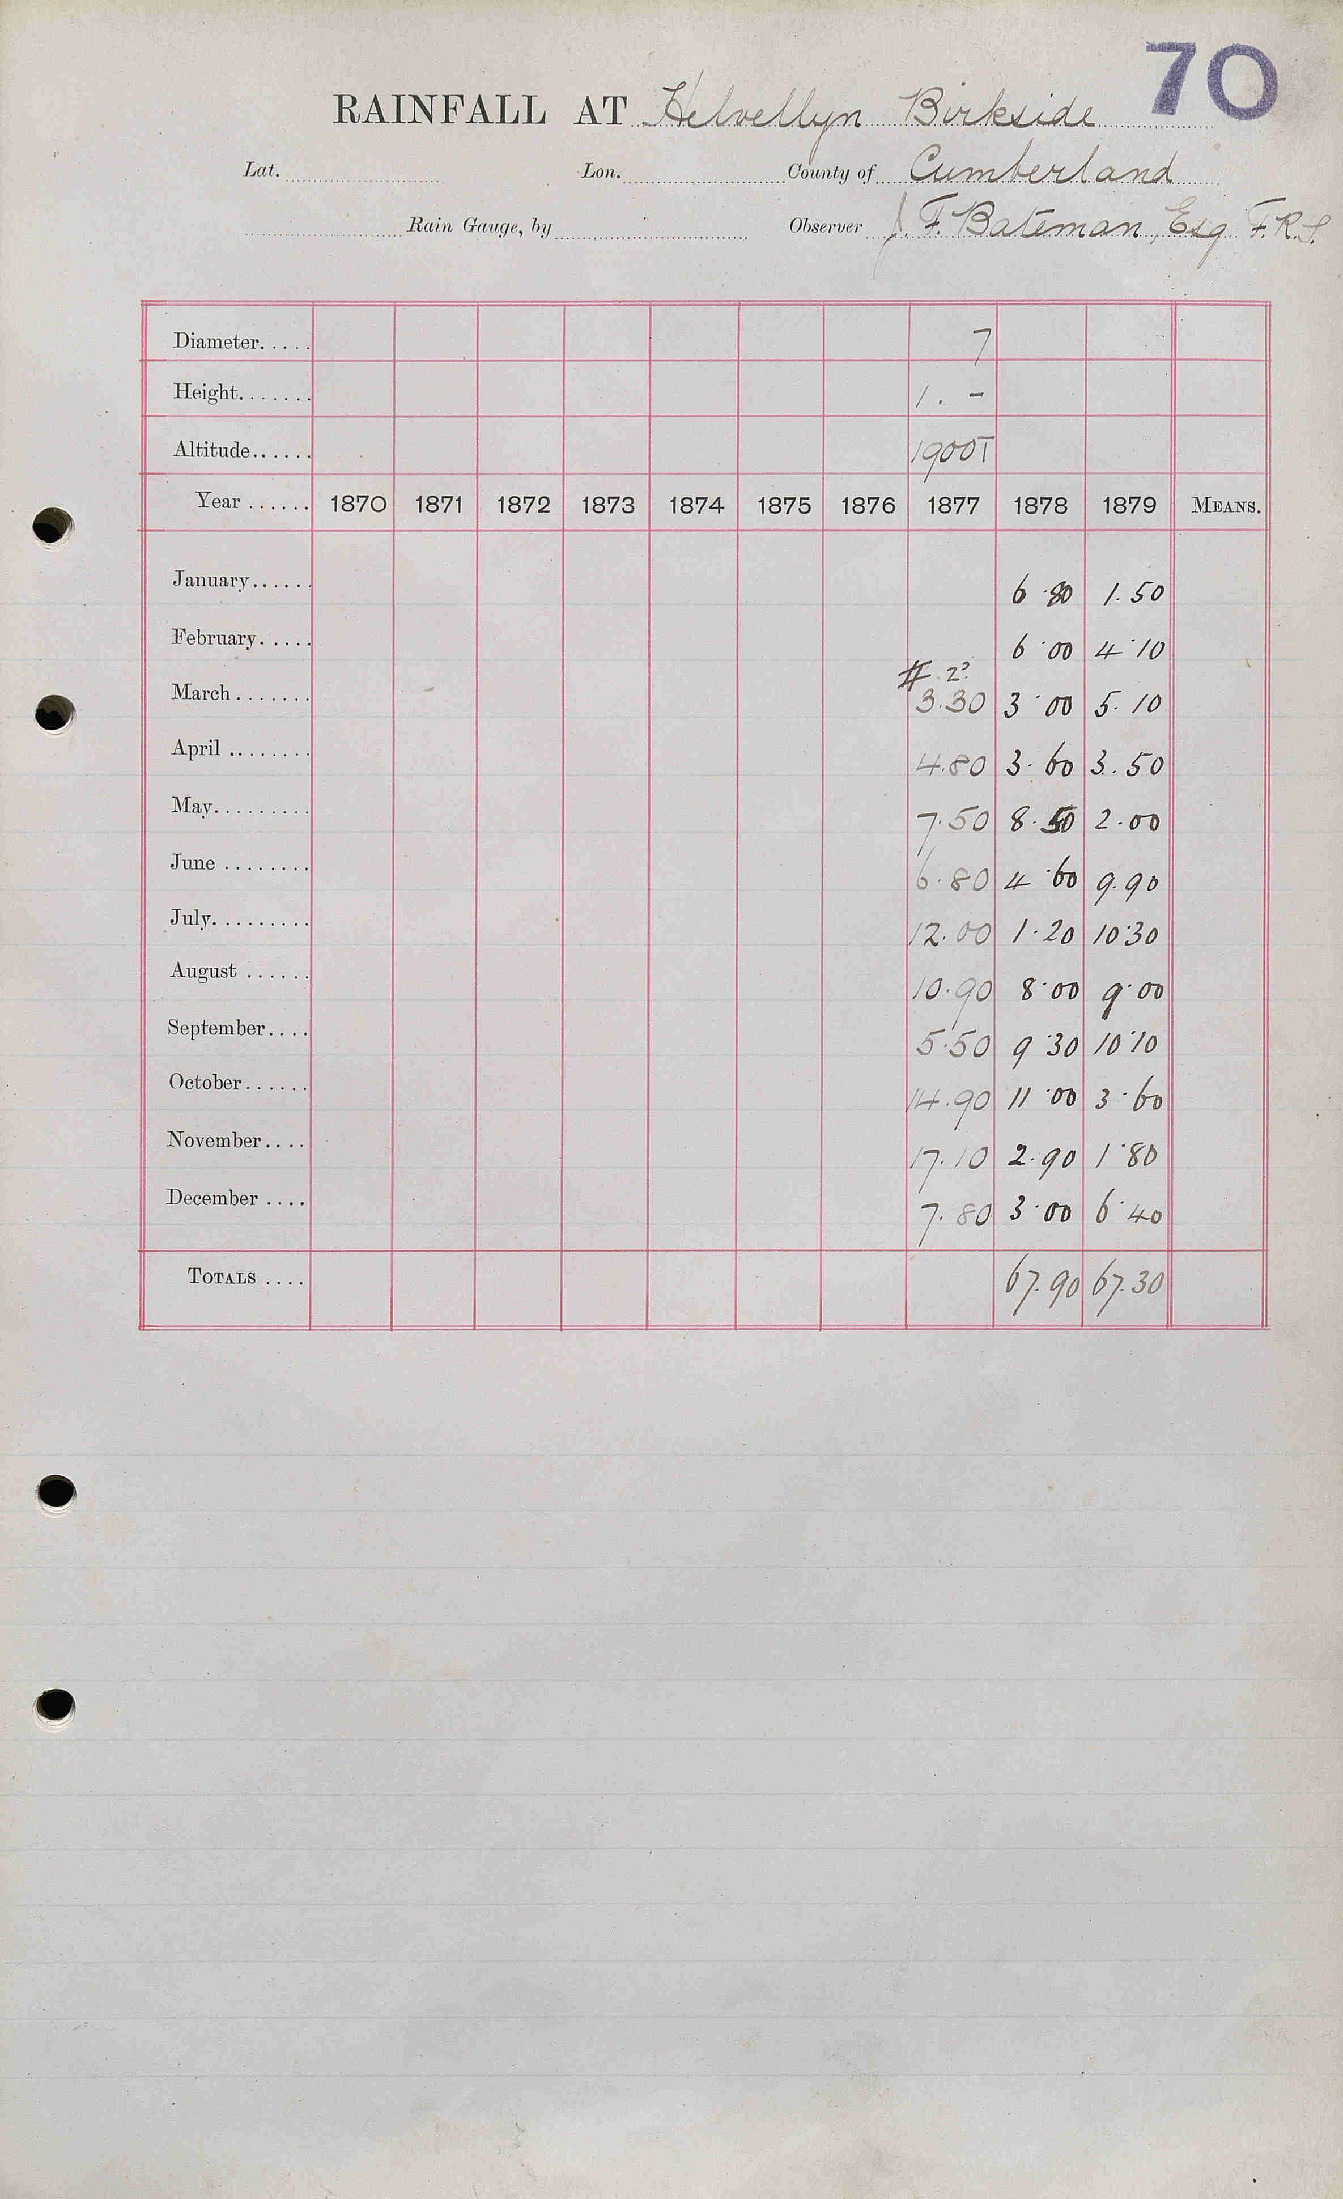 70
RAINFALL AT Helvellyn Birkside
Lat. Lon. County of Cumberland
Rain Gauge, by Observer J. F. Bateman, Esq F.R.S.
Diameter..... 7
Height....... 1. -
Altitude...... 1900T
Year ...... 1870 1871 1872 1873 1874 1875 1876 1877 1878 1879 MEANS.
January...... 6.80 1.50
February..... 6.00 4.10
#
March....... 3.30 3.00 5.10
April ........ 4.80 3.60 3.50
May......... 7.50 8.50 2.00
June ........ 6.80 4.60 9.90
July......... 12.00 1.20 10.30
August ...... 10.90 8.00 9.00
September.... 5.50 9.30 10.10
October...... 14.90 11.00 3.60
November.... 17.10 2.90 1.80
December .... 7.80 3.00 6.40
TOTALS .... 67.90 67.30